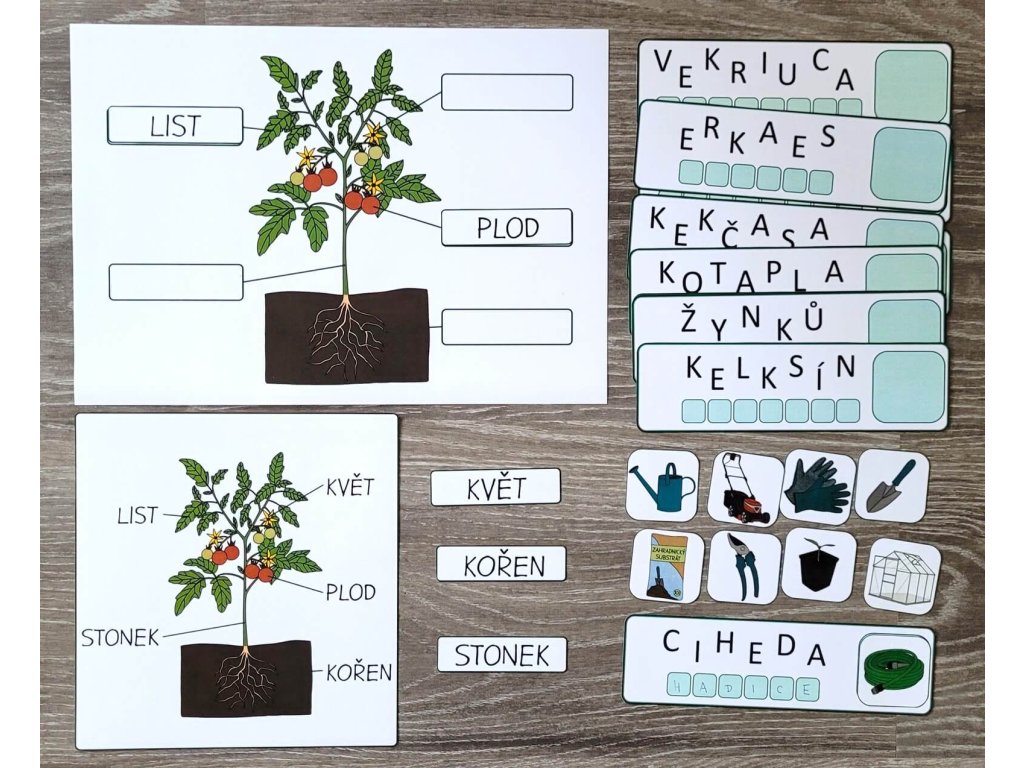 LIST
PLOD
KVĚT
LIST
PLOD
STONEK
KOŘEN
KVĚT
KOŘEN
STONEK
VEKRIUCA
ERKAES
KEKČASA
KOTAPLA
ŽYNKŮ
KELKSÍN
ZAHRADNICKÝ
SUBSTRÁT
CIHEDA
HADICE